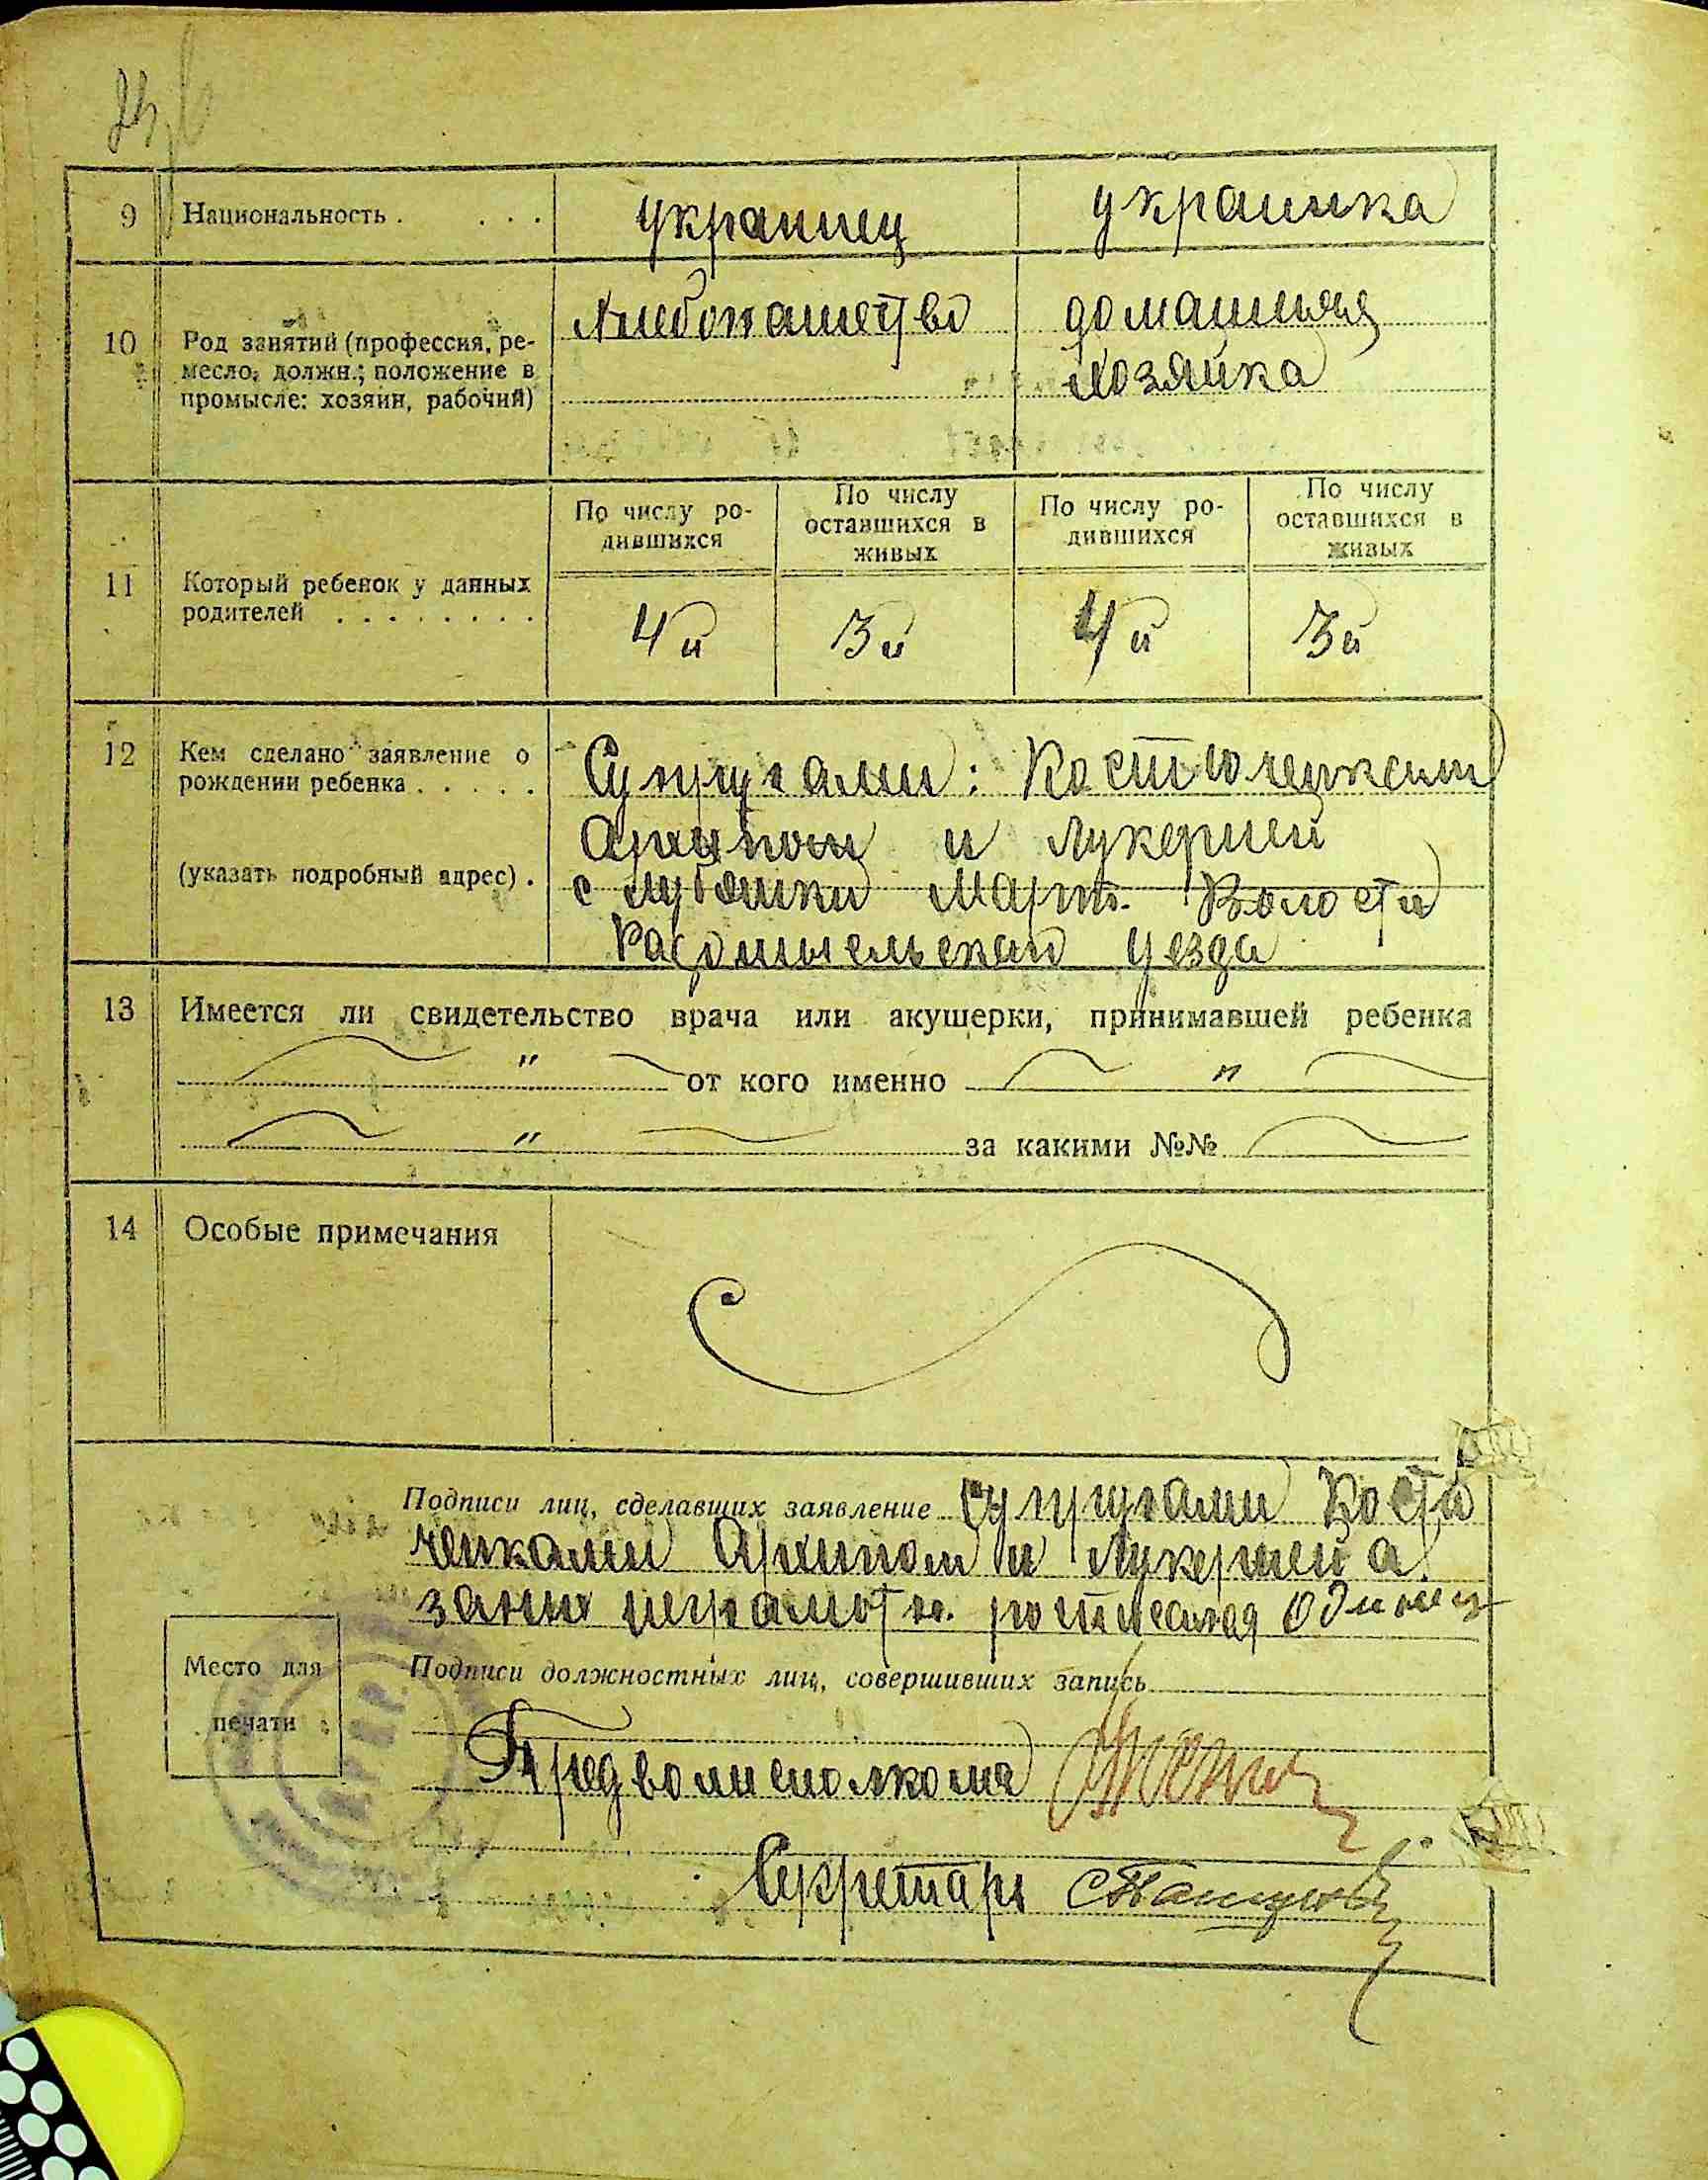 9 Национальность . . . . украинец украинка
10 Род занятий (профессия, ре-
месло, должн.; положение в
промысле: хозяин, рабочий)
хлебопашество
домашняя
хозяйка
11 Который ребенок у данных
родителей . . . . . . . .
По числу ро-
дившихся
По числу
оставшихся в
живых
По числу ро-
дившихся
По числу
оставшихся в
живых
4й 3й 4й 3й
12 Кем сделано заявление о
рождении ребенка . . . . .
(указать подробный адрес) .
Супругами:
Архипом и Лукерией
с Март. Волости
Радомысельскаго уезда
13 Имеется ли свидетельство врача или акушерки, принимавшей ребенка
" от кого именно "
" за какими №№
14 Особые примечания
Подписи лиц, сделавших заявление супругами Костю
ченками Архипом и Лукерией а
за них неграмотн.
Место для
печати
Подписи должностных лиц, совершивших запись
Предволисполкома
Секретарь